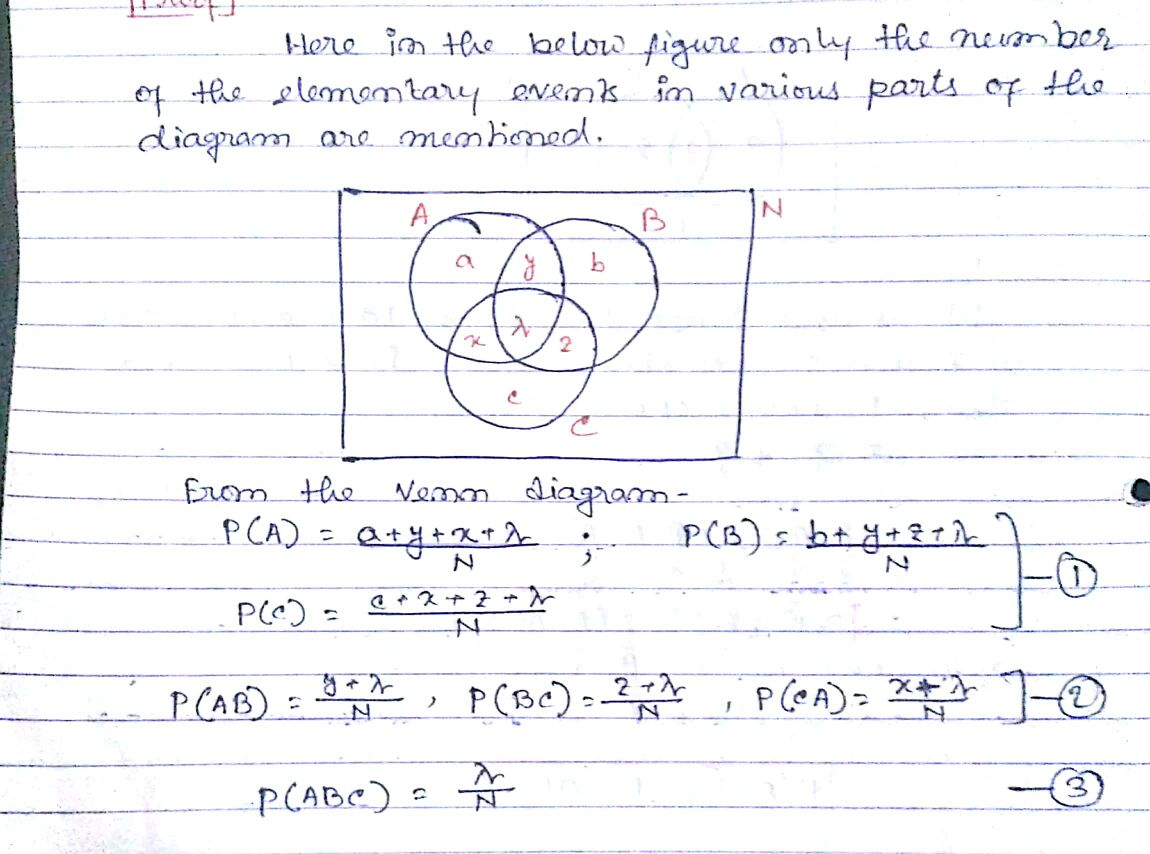 [Proof]
Here in the below figure only the number
of the elementary events in various parts of the
diagram are mentioned.
A B N
a y b
x λ z
c
C
From the Venn diagram-
P(A) = a+y+x+λ / N ; P(B) = b+y+z+λ / N ] — ①
P(C) = c+x+z+λ / N
P(AB) = y+λ / N , P(BC) = z+λ / N , P(CA) = x+λ / N ] — ②
P(ABC) = λ / N — ③